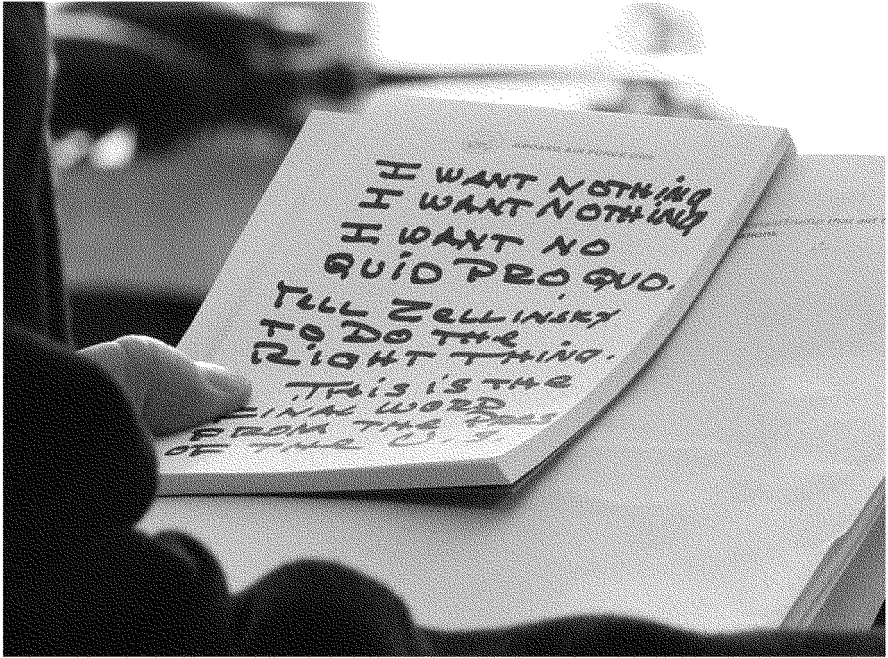 ABOARD AIR FORCE ONE
I WANT NOTHING
I WANT NOTHING
I WANT NO
QUID PRO QUO.
TELL ZELLINSKY
TO DO THE
RIGHT THING.
THIS IS THE
FINAL WORD
FROM THE PRES
OF THE U.S